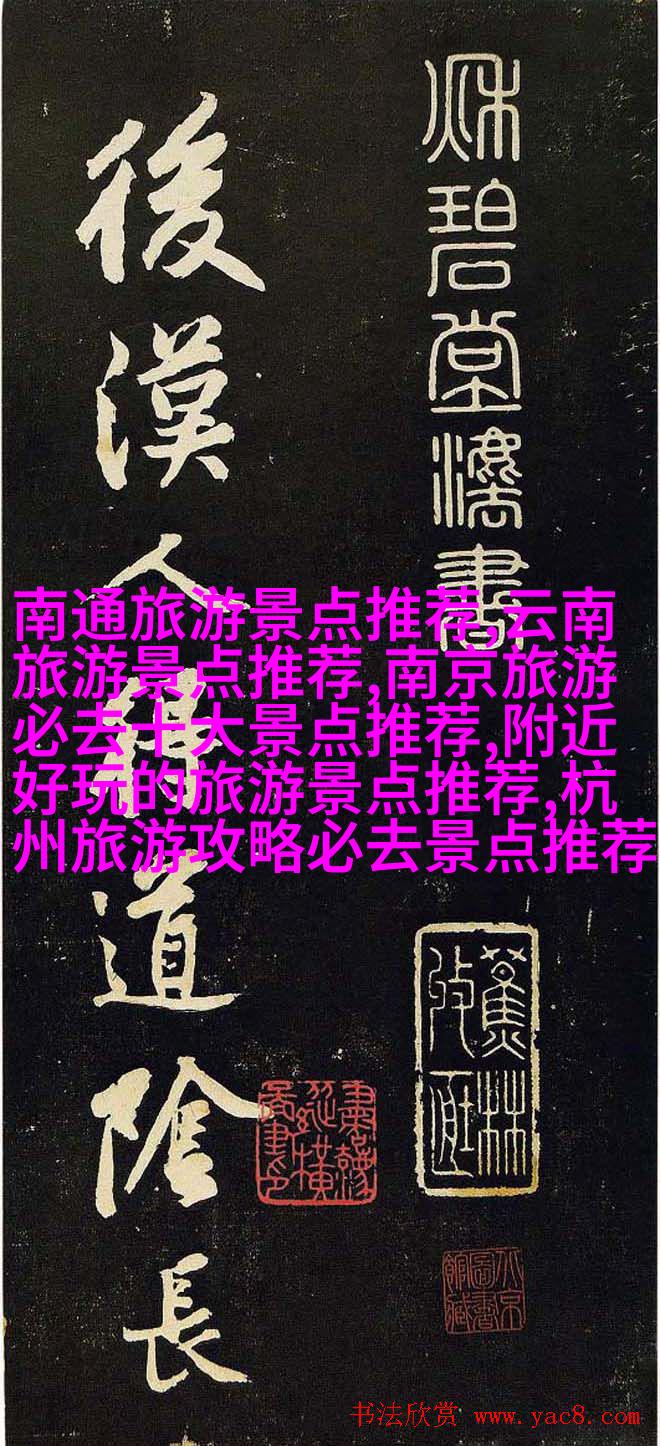 秌碧堂灋書
後漢人得道陰長
南通旅游景点推荐,云南
旅游景点推荐,南京旅游
必去十大景点推荐,附近
好玩的旅游景点推荐,杭
州旅游攻略必去景点推荐
蕉林
北京
圖書
館藏
书法欣赏 www.yac8.com